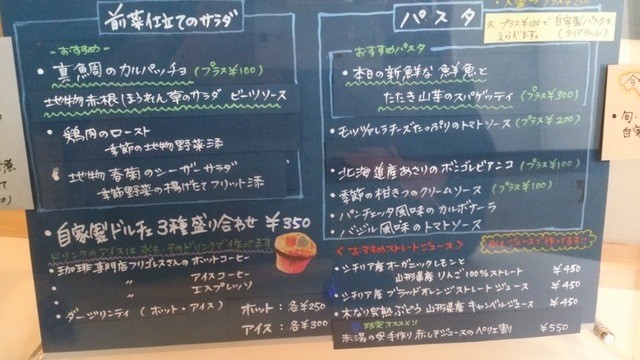 前菜仕立てのサラダ
-おすすめ-
・真魚周のカルパッチョ (プラス¥100)
地物赤根ほうれん草のサラダ ビーツソース
・鶏肉のロースト
季節の地物野菜添
・地物春菊のシーザーサラダ
季節野菜の揚げ立てフリット添
・自家製ドルチェ3種盛り合わせ ¥350
・珈琲専門店フリゴレスさんのホットコーヒー
・ 〃 アイスコーヒー
・ 〃 エスプレッソ
・ダージリンティ (ホット・アイス)
ホット:各¥250
アイス:各¥300
パスタ
プラス¥100で自家製パスタも
えらべます。
おすすめパスタ
・本日の新鮮な鮮魚と
たたき山芋のスパゲッティ (プラス¥300)
・モッツァレラチーズたっぷりのトマトソース (プラス¥200)
・北海道産あさりのボンゴレビアンコ (プラス¥100)
・季節の柑きつのクリームソース (プラス¥100)
・パンチェッタ風味のカルボナーラ
・バジル風味のトマトソース
<おすすめストレートジュース>
・シチリア産オーガニックレモンと
山形県産りんご100%ストレート ¥450
・シチリア産ブラッドオレンジストレートジュース ¥450
・木なり完熟ぶどう山形県産キャンベルジュース ¥450
限定オススメ!!
赤湯の 手作り赤しそジュースのペリエ割 ¥550